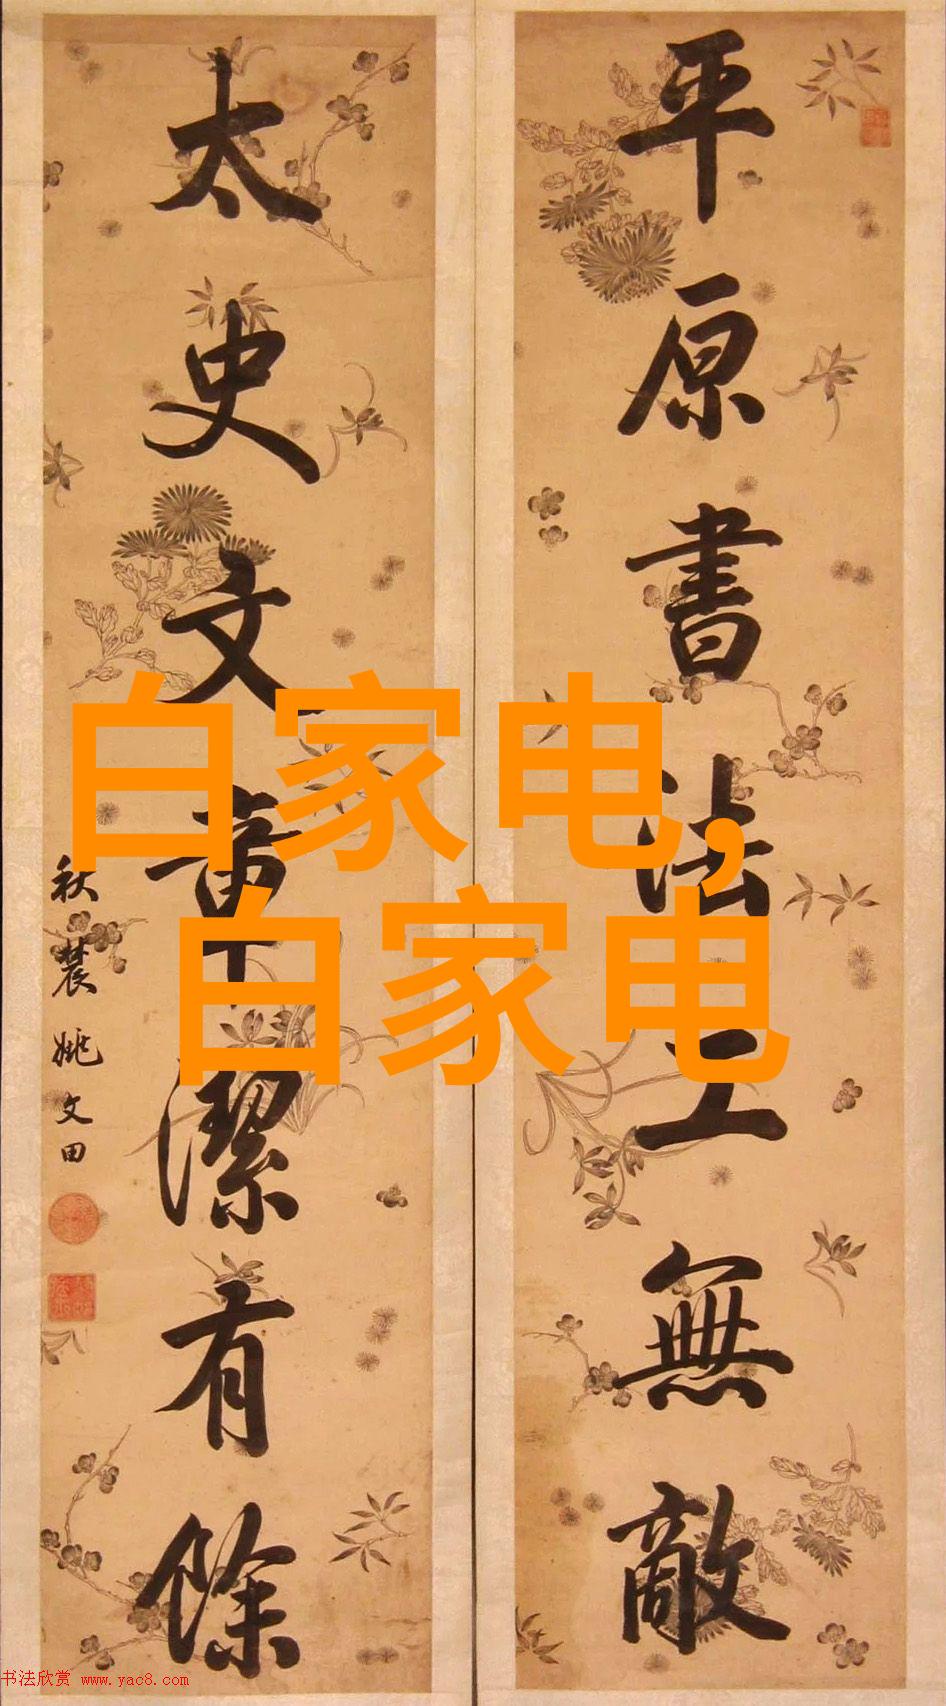 平原書法工無敵
太史文章潔有餘
秋農姚文田
白家电,
白家电
书法欣赏 www.yac8.com